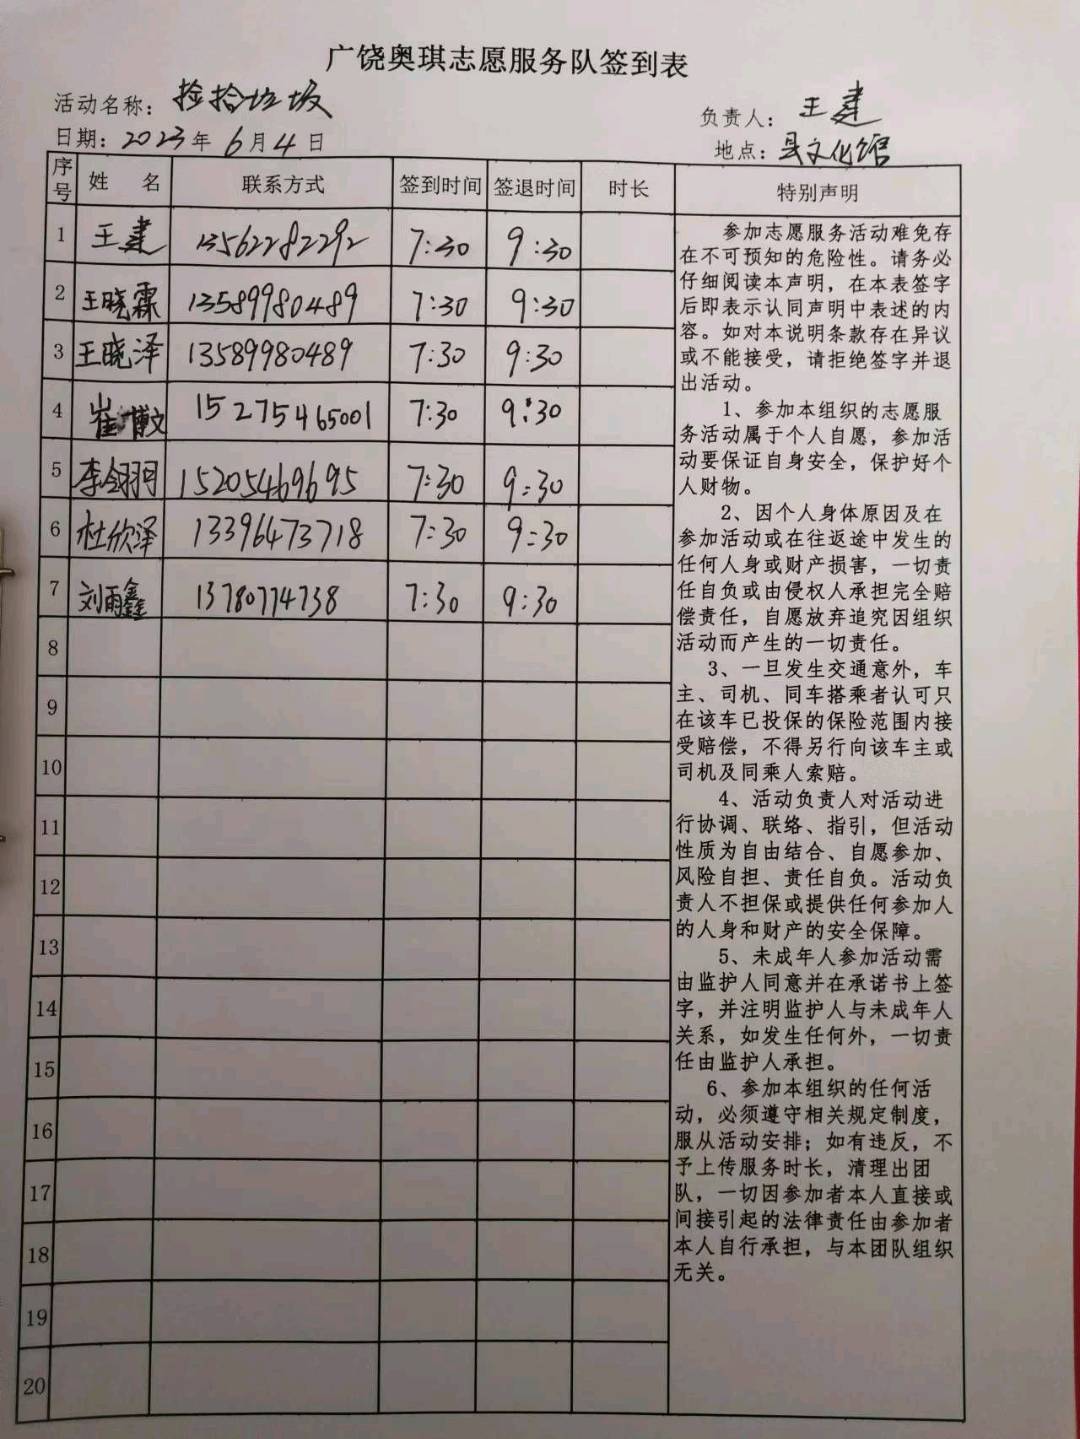 广饶奥琪志愿服务队签到表
活动名称：捡拾垃圾
负责人：王建
日期：2023年6月4日
地点：县文化馆
序号 姓 名 联系方式 签到时间 签退时间 时长 特别声明
1 王建 13562282292 7:30 9:30
2 王晓霖 13589980489 7:30 9:30
3 王晓泽 13589980489 7:30 9:30
4 崔博文 15275465001 7:30 9:30
5 李翎羽 15205469695 7:30 9:30
6 杜欣泽 13396473718 7:30 9:30
7 刘雨鑫 13780774738 7:30 9:30
8
9
10
11
12
13
14
15
16
17
18
19
20
参加志愿服务活动难免存
在不可预知的危险性。请务必
仔细阅读本声明，在本表签字
后即表示认同声明中表述的内
容。如对本说明条款存在异议
或不能接受，请拒绝签字并退
出活动。
1、参加本组织的志愿服
务活动属于个人自愿，参加活
动要保证自身安全，保护好个
人财物。
2、因个人身体原因及在
参加活动或在往返途中发生的
任何人身或财产损害，一切责
任自负或由侵权人承担完全赔
偿责任，自愿放弃追究因组织
活动而产生的一切责任。
3、一旦发生交通意外，车
主、司机、同车搭乘者认可只
在该车已投保的保险范围内接
受赔偿，不得另行向该车主或
司机及同乘人索赔。
4、活动负责人对活动进
行协调、联络、指引，但活动
性质为自由结合、自愿参加、
风险自担、责任自负。活动负
责人不担保或提供任何参加人
的人身和财产的安全保障。
5、未成年人参加活动需
由监护人同意并在承诺书上签
字，并注明监护人与未成年人
关系，如发生任何外，一切责
任由监护人承担。
6、参加本组织的任何活
动，必须遵守相关规定制度，
服从活动安排；如有违反，不
予上传服务时长，清理出团
队，一切因参加者本人直接或
间接引起的法律责任由参加者
本人自行承担，与本团队组织
无关。